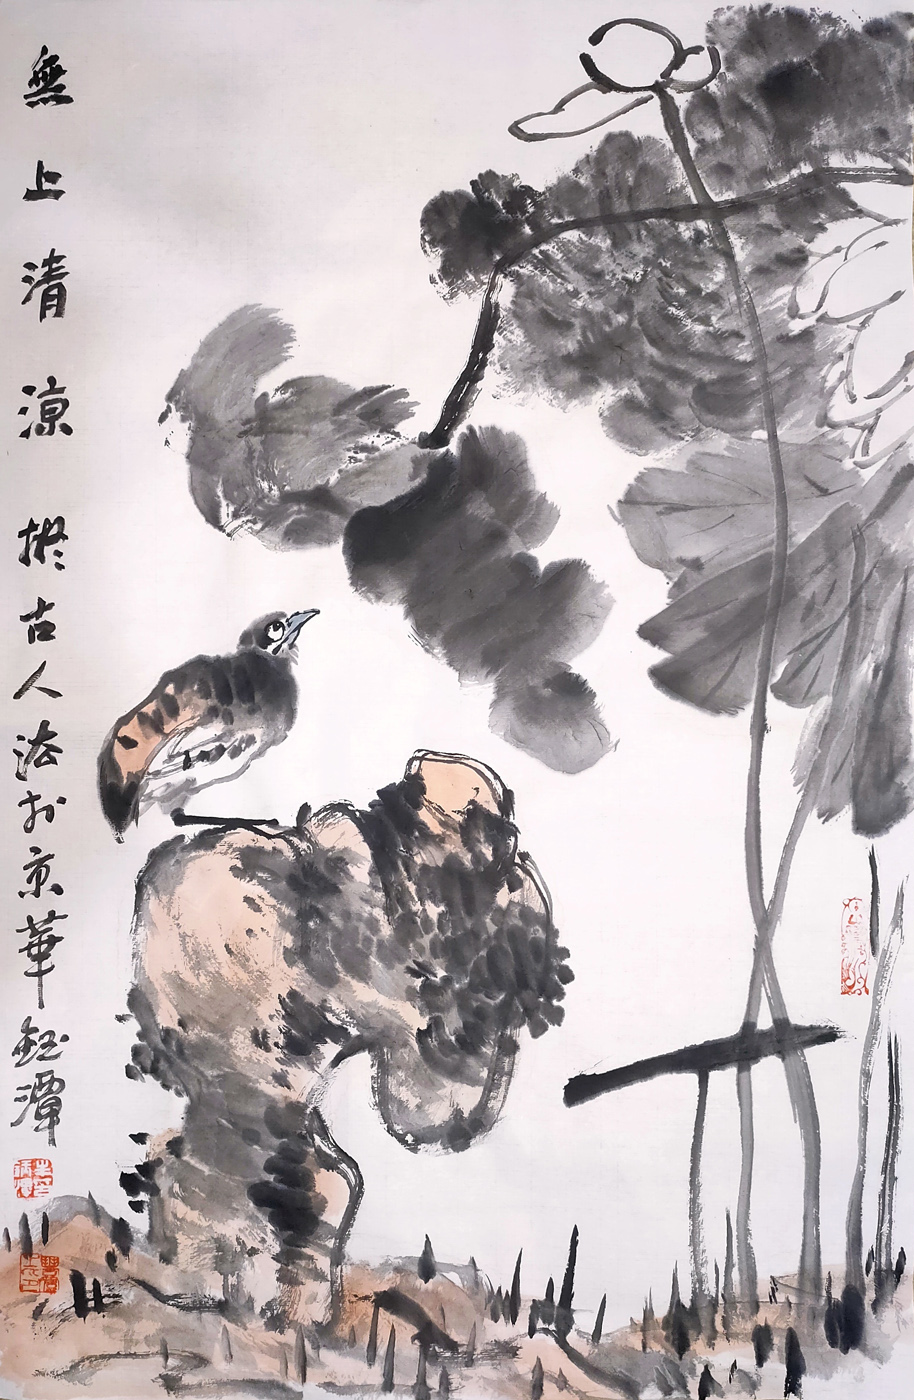 無上清涼 擬古人法於京華鈺潭